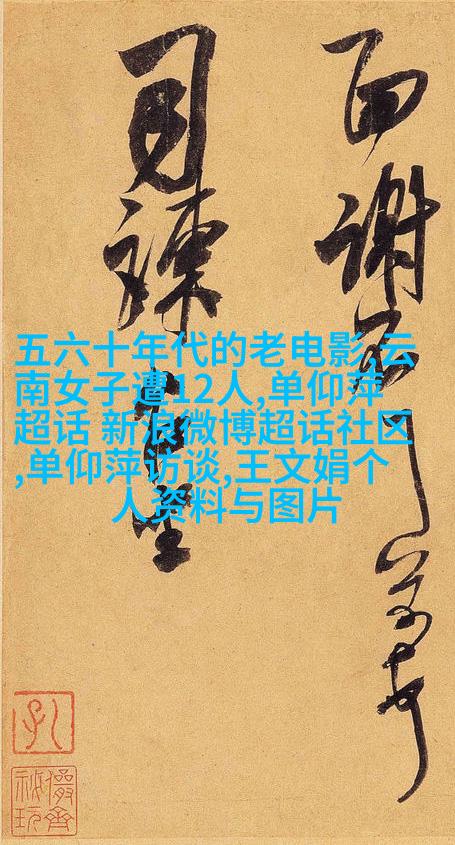 五六十年代的老电影,云
南女子遭12人,单仰萍
超话 新浪微博超话社区
,单仰萍访谈,王文娟个
人资料与图片
面謝不
司諫台坐
儼齋
秘玩